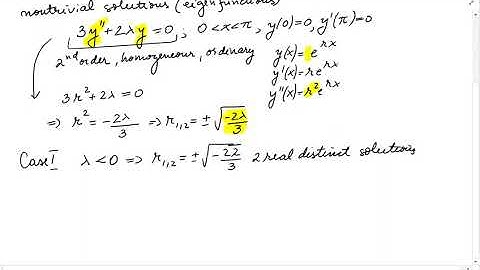 nontrivial solutions (eigenfunctions)
3y'' + 2λy = 0, 0 < x < π, y(0) = 0, y'(π) = 0
2nd order, homogeneous, ordinary
y(x) = e^{rx}
y'(x) = re^{rx}
y''(x) = r²e^{rx}
3r² + 2λ = 0
⇒ r² = -2λ/3 ⇒ r₁,₂ = ±√(-2λ/3)
Case I λ < 0 ⇒ r₁,₂ = ±√(-2λ/3) 2 real distinct solutions